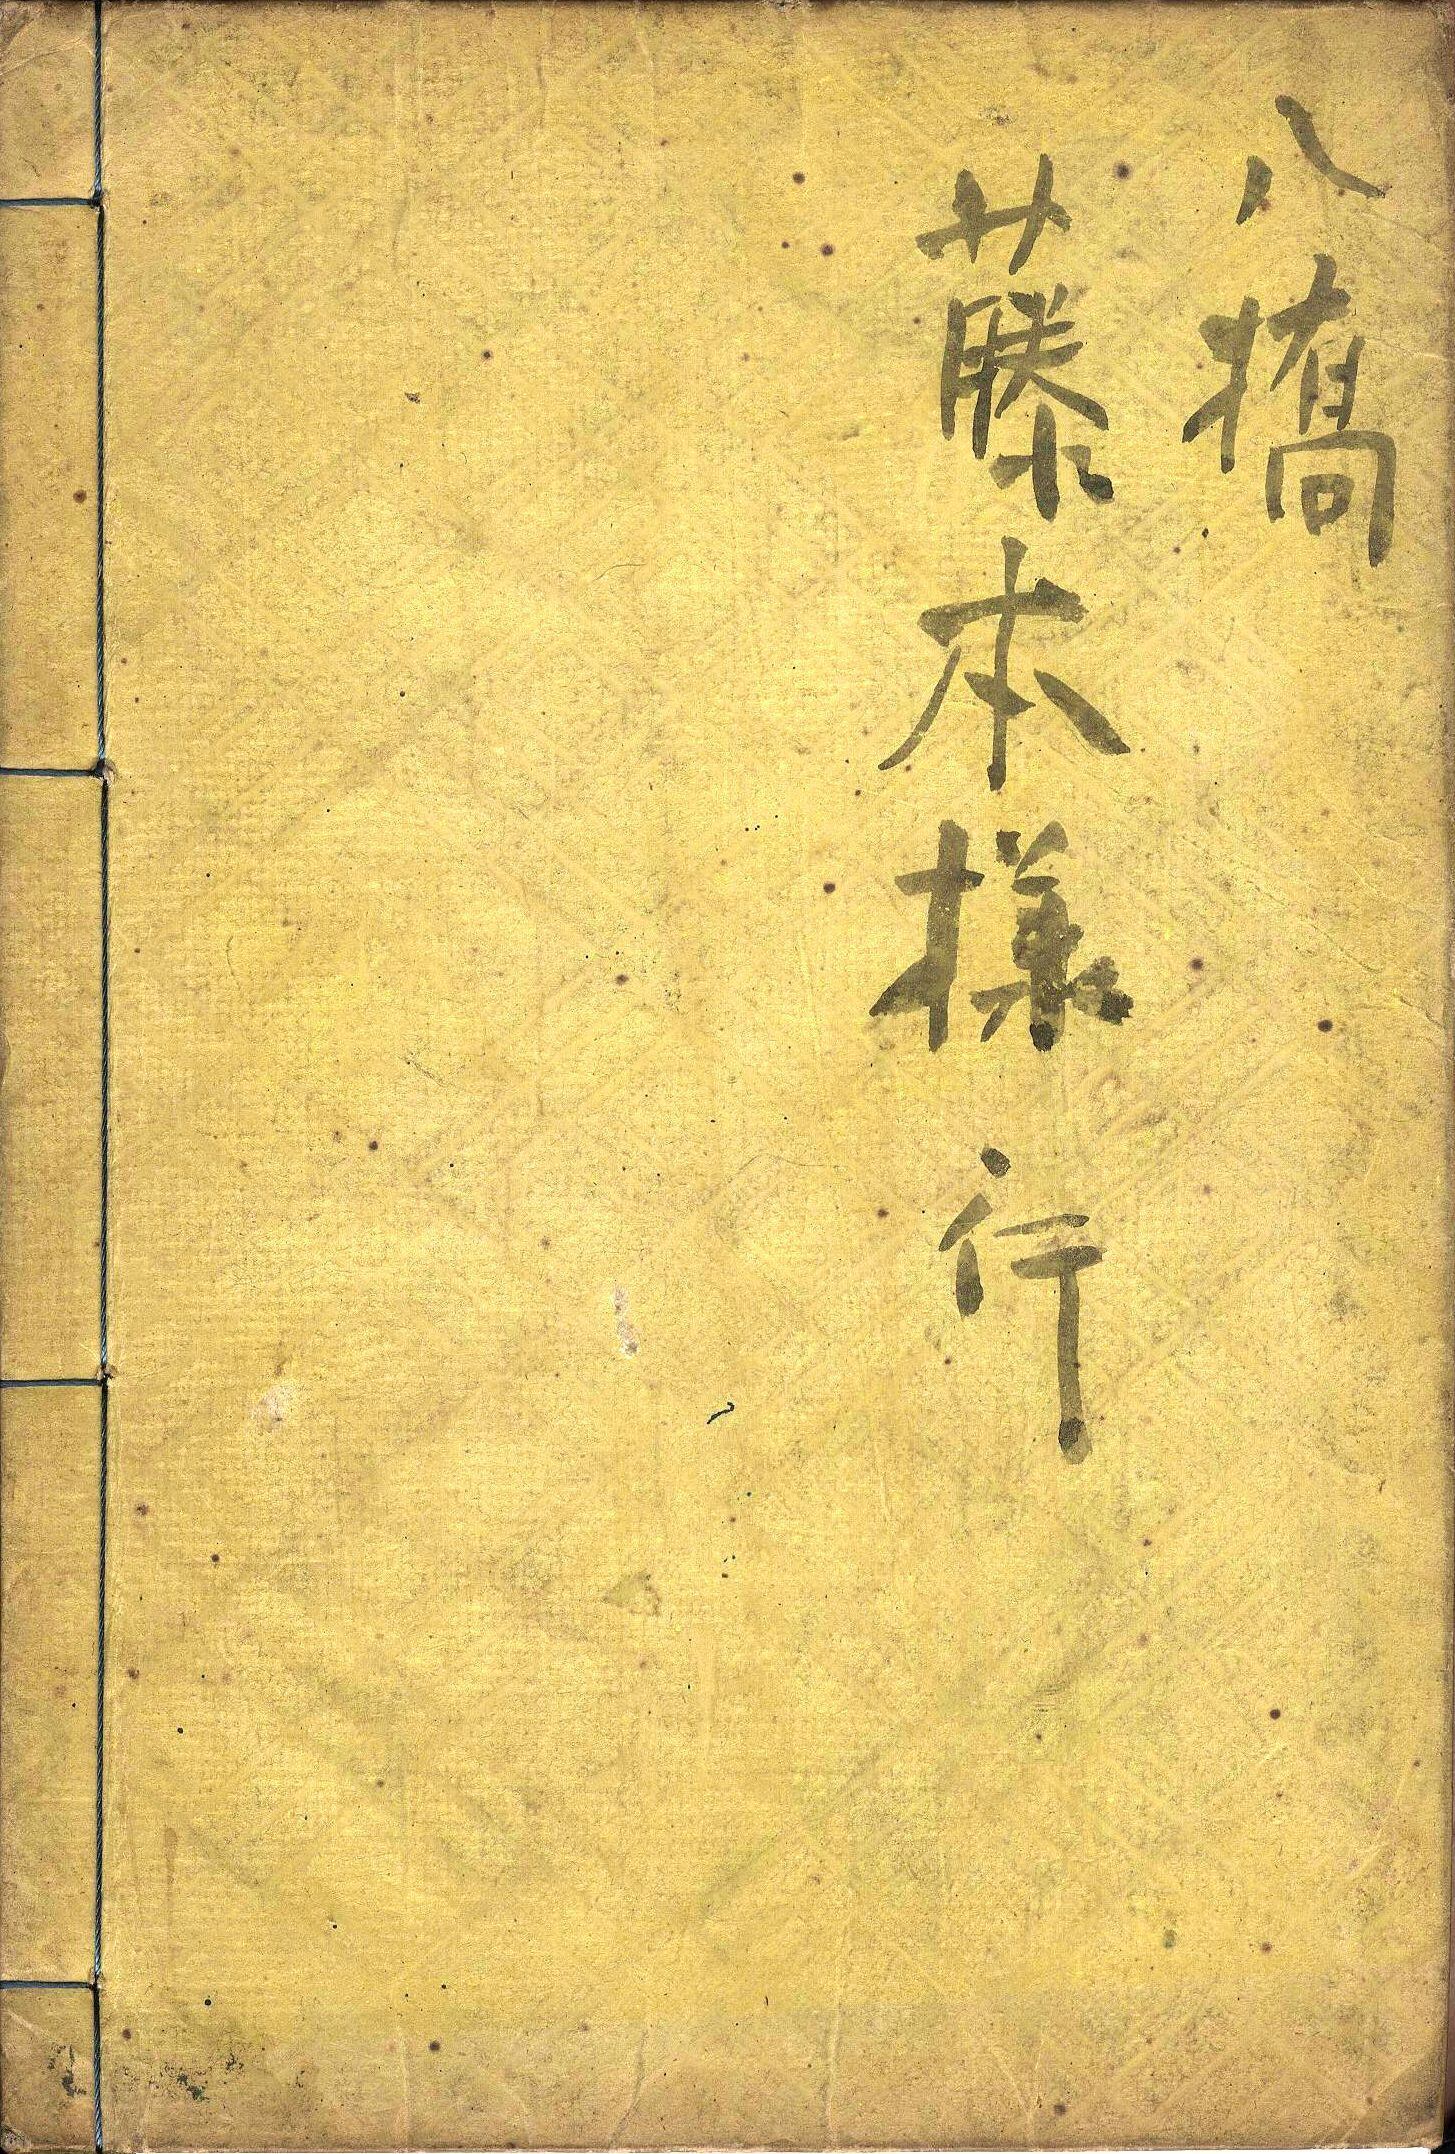 八橋
藤本様行